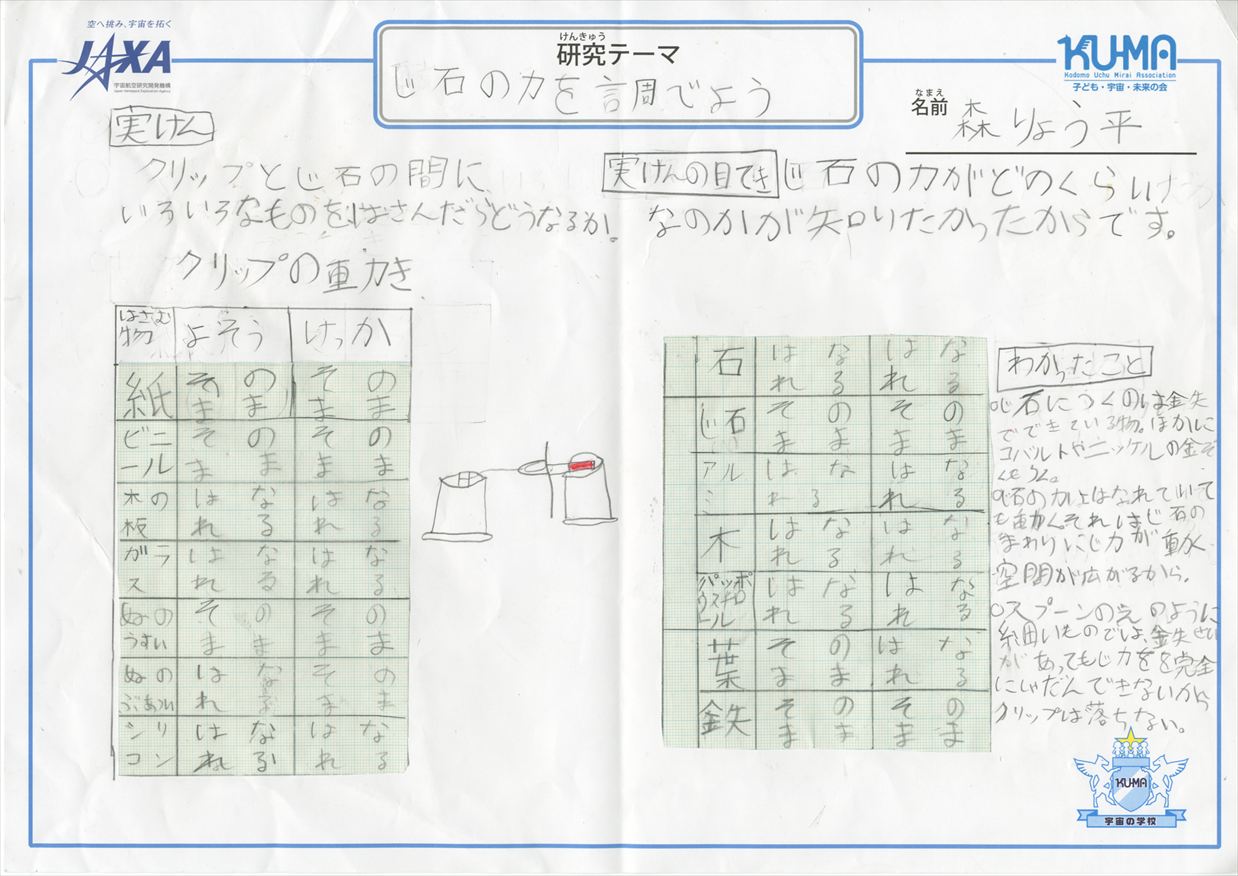 空へ挑み、宇宙を拓く
JAXA
宇宙航空研究開発機構
Japan Aerospace Exploration Agency
けんきゅう
研究テーマ
じ石の力を調べよう
KU-MA
Kodomo Uchu Mirai Association
子ども・宇宙・未来の会
なまえ
名前 森りょう平
実けん
クリップとじ石の間に
いろいろなものをはさんだらどうなるか。
実けんの目てき じ石の力がどのくらい
なのかが知りたかったからです。
クリップの動き
はさむ物 よそう けっか
紙 そのまま そのまま
ビニール そのまま そのまま
木の板 はなれる はなれる
ガラス はなれる はなれる
ぬのうすい そのまま そのまま
ぬのぶあつい はなれる そのまま
シリコン はなれる はなれる
石 はなれる はなれる
じ石 そのまま そのまま
アルミ はなれる はなれる
木 はなれる はなれる
はなれる はなれる
葉 そのまま はなれる
鉄 そのまま そのまま
わかったこと
○じ石につくのは金失
でできている物。ほかに
コバルトやニッケルの金ぞ
くもつく。
○じ石の力ははなれていて
も動くそれはじ石の
まわりにじ力が動く
空間が広がるから。
○スプーンのえのように
細いものでは、金失せい
があってもじ力をを完全
にしゃだんできないから
クリップは落ちない。
KU-MA
宇宙の学校